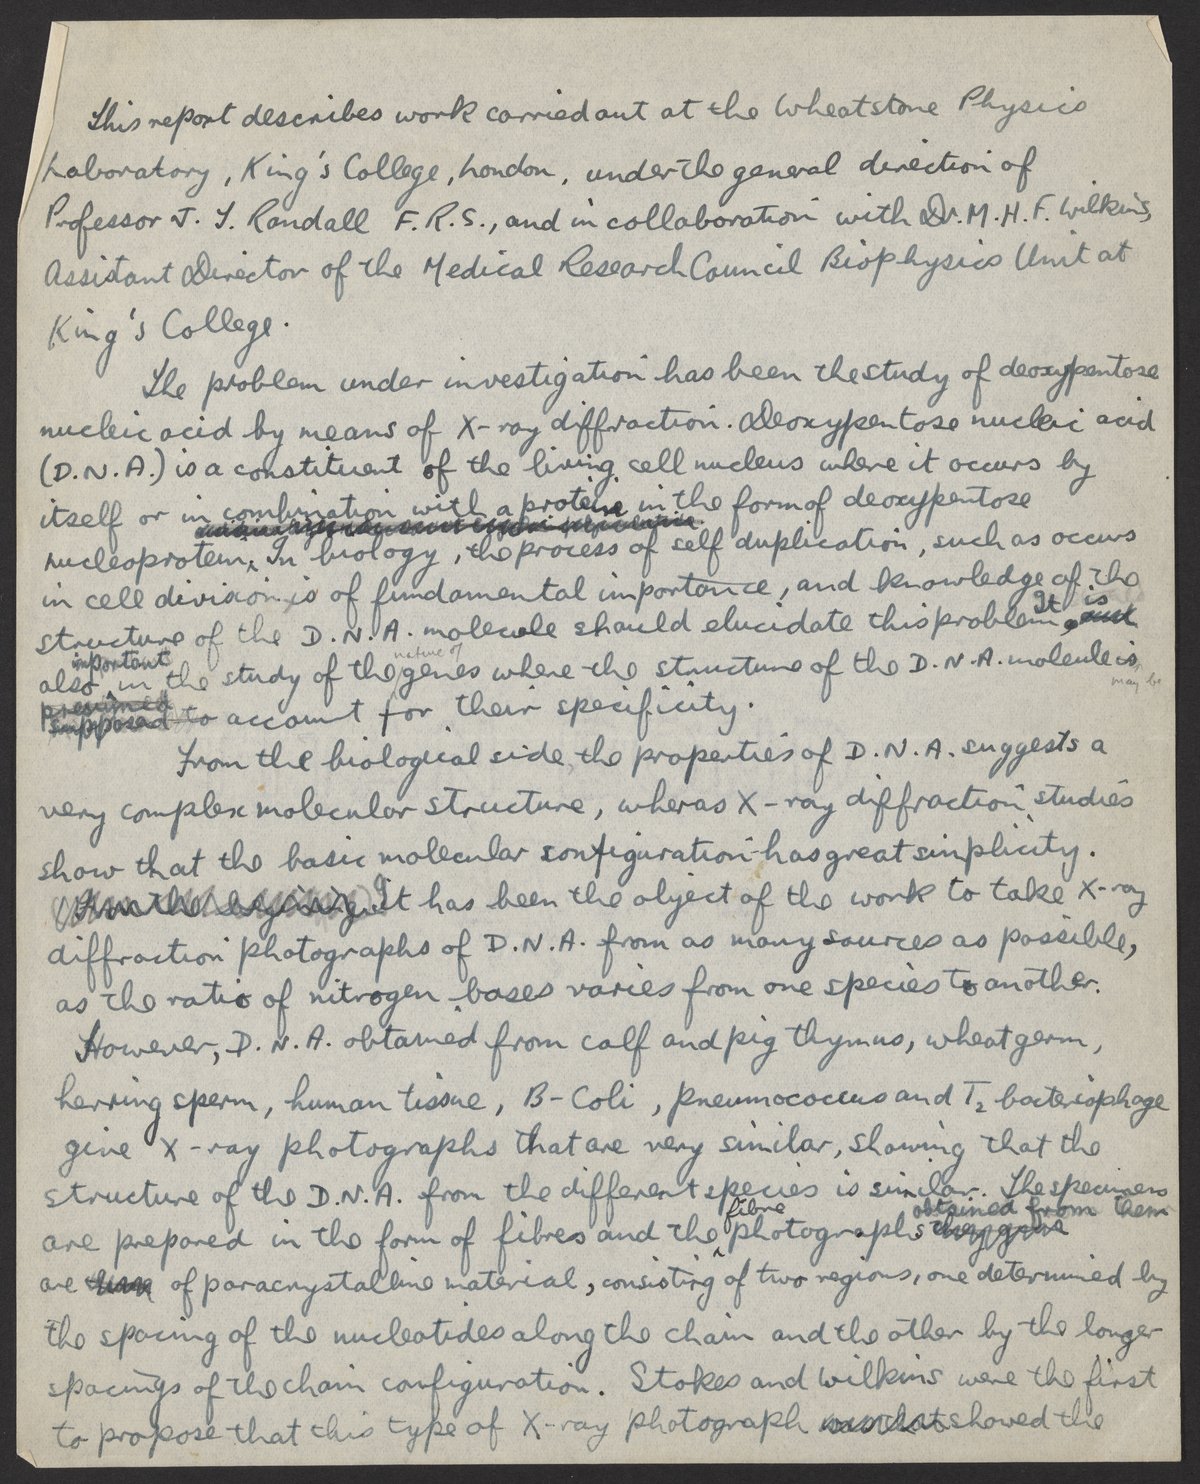 This report describes work carried out at the Wheatstone Physics
Laboratory, King's College, London, under the general direction of
Professor J. T. Randall F.R.S., and in collaboration with Dr. M.H.F. Wilkins,
Assistant Director of the Medical Research Council Biophysics Unit at
King's College.
The problem under investigation has been the study of deoxypentose
nucleic acid by means of X-ray diffraction. Deoxypentose nucleic acid
(D.N.A.) is a constituent of the living cell nucleus where it occurs by
itself or in combination with a protein in the form of deoxypentose
nucleoprotein. In biology, the process of self duplication, such as occurs
in cell division, is of fundamental importance, and knowledge of the
structure of the D.N.A. molecule should elucidate this problem. It is
important nature of
also in the study of the genes where the structure of the D.N.A. molecule is
may be
presumed
supposed to account for their specificity.
From the biological side the properties of D.N.A. suggests a
very complex molecular structure, wheras X-ray diffraction studies
show that the basic molecular configuration has great simplicity.
From the beginning It has been the object of the work to take X-ray
diffraction photographs of D.N.A. from as many sources as possible,
as the ratio of nitrogen bases varies from one species to another.
However, D.N.A. obtained from calf and pig thymus, wheat germ,
herring sperm, human tissue, B-Coli, pneumococcus and T2 bacteriophage
give X-ray photographs that are very similar, showing that the
structure of the D.N.A. from the different species is similar. The specimens
fibre obtained from them
are prepared in the form of fibres and the photographs they give
are of paracrystalline material, consisting of two regions, one determined by
the spacing of the nucleotides along the chain and the other by the longer
spacings of the chain configuration. Stokes and Wilkins were the first
to propose that this type of X-ray photograph showed the